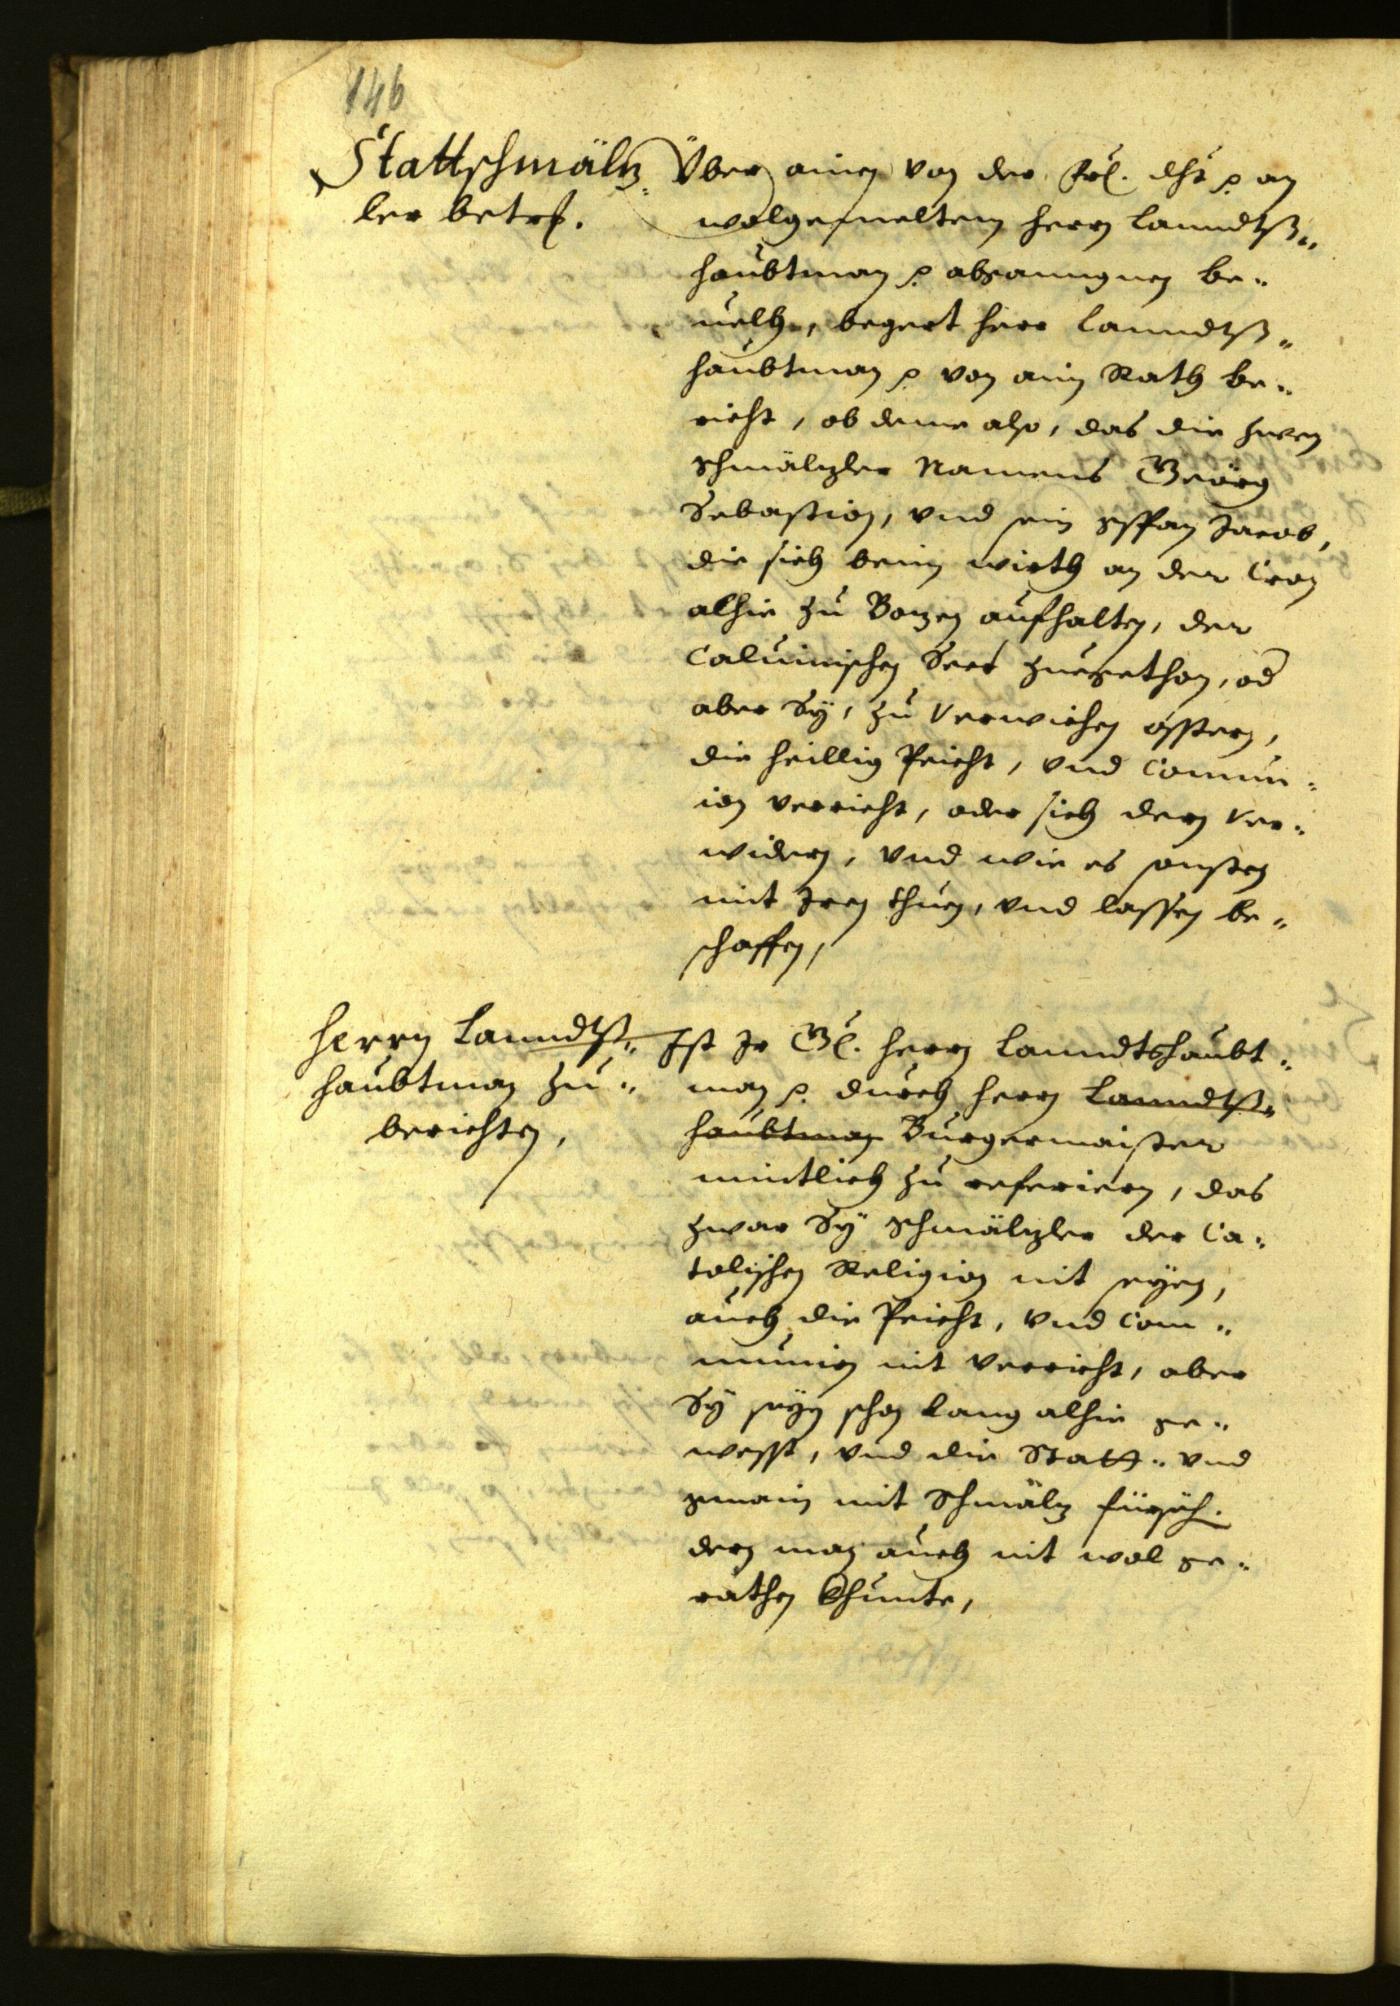 146
Stattschmälz„
ler betr.
Über ainen von der Frl. dht ꝛ. an
wolgemeltem herrn Lanndtß„
haubtman ꝛ. abganngnen be„
uelch, begert herr Lanndtß„
haubtman ꝛ. von aim Rath be„
richt, ob deme also, das die zwen
Schmälzler Namens Geörg
Sebastion, vnd sein gspan Jacob,
die sich beim wierth an der Cron
alhie zu Bozen aufhalten, der
Caluinischen Sect zuegethon, od
aber Sÿ, zu verwichen osstern,
die heillig Peicht, vnd Comun„
ion verricht, oder sich dern ver„
widern, vnd wie es sonsten
mit Jren thuen, vnd lassen be„
schaffen,
Herrn Lanndtß„
haubtman zu„
berichten,
Ist Jr Gl. herrn Lanndtshaubt„
man ꝛ. durch herrn Lanndtß„
haubtman Burgermaister
mintlich zu referiern, das
zwar Sÿ Schmälzler der Ca„
tolischen Religion nit seyen,
auch die Peicht, vnd Com„
munion nit verricht, aber
Sÿ seyen schon lang alhie ge„
wesst, vnd die Statt„ vnd
gmain mit Schmälz fürsich.
dern man auch nit wol ge„
rathen khunte,